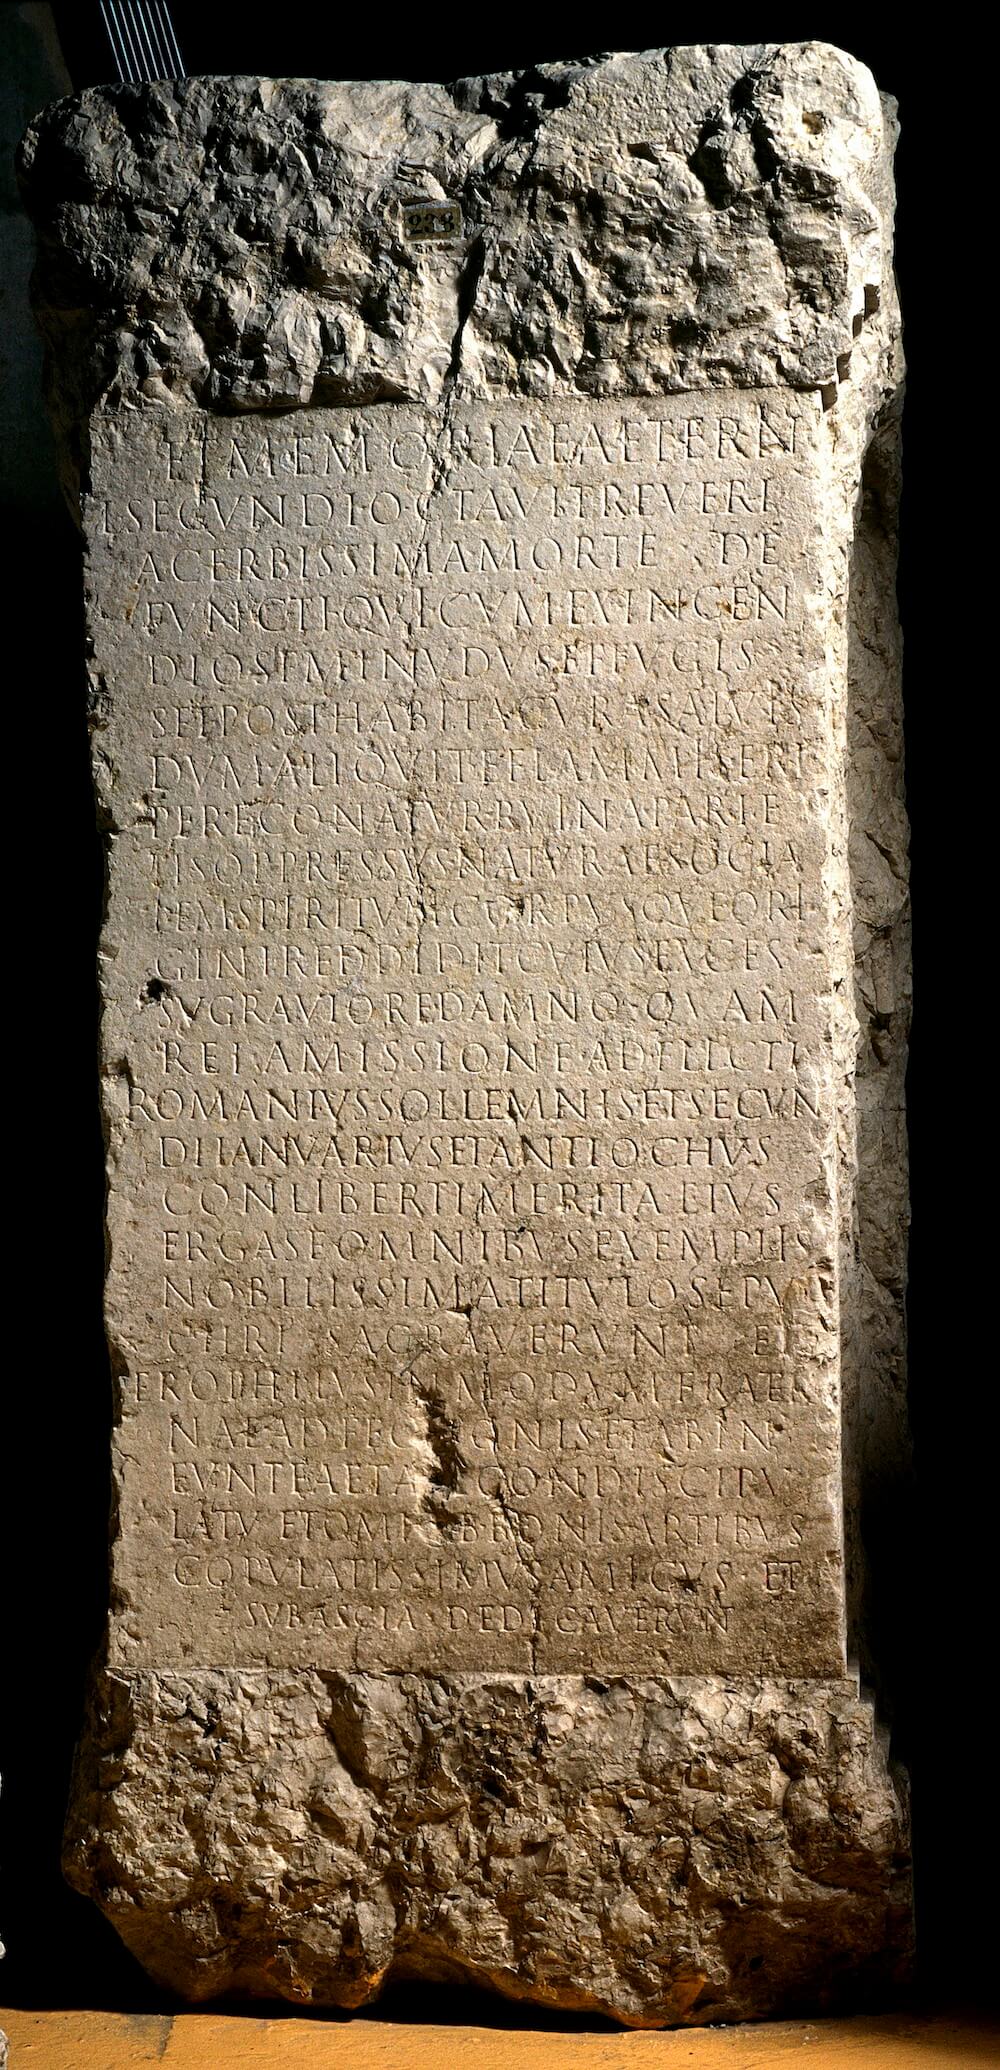 ET MEMORIAE AETERN
I SECVNDI OCTAVI TREVERI
ACERBISSIMA MORTE DE
FVNCTI QVI CVM EX INCEN
DIO SEMINVDVS EFFVGIS
SET POSTHABITA CVRA SALVTIS
DVM ALIQVIT E FLAMMIS ERI
PERE CONATVR RVINA PARIE
TIS OPPRESSVS NATVRAE SOCIA
LEM SPIRITVM CORPVSQVE ORI
GINI REDDIDIT CVIVS EXCES
SV GRAVIORE DAMNO QVAM
REI AMISSIONE ADFLICTI
ROMANIVS SOLLEMNIS ET SECVN
DI IANVARIVS ET ANTIOCHVS
CONLIBERTI MERITA EIVS
ERGA SE OMNIBVS EXEMPLIS
NOBILISSIMA TITVLO SEPVL
CHRI SACRAVERVNT ET
EROPHILVS IN MODVM FRATER
NAE ADFEC GNIS ET AB IN
EVNTE AETA CONDISCIPV
LATV ET OMN B BONIS ARTIBVS
COPVLATISSIMVS AMICVS · ET
SVB ASCIA · DEDICAVERVN